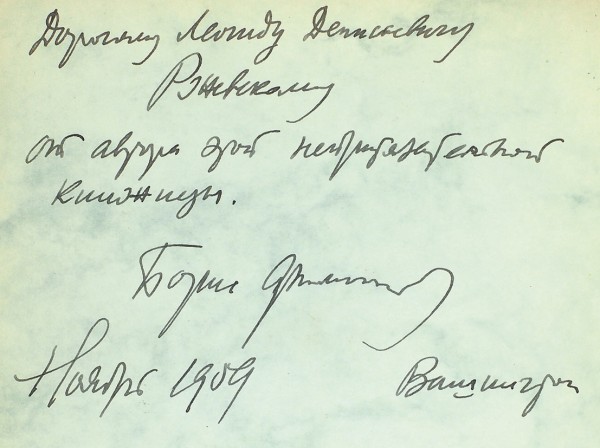 Дорогому Леониду Денисовичу
Ржевскому
от автора этой непритязательной
книжицы.
Борис Филиппов
Ноябрь 1969 Вашингтон